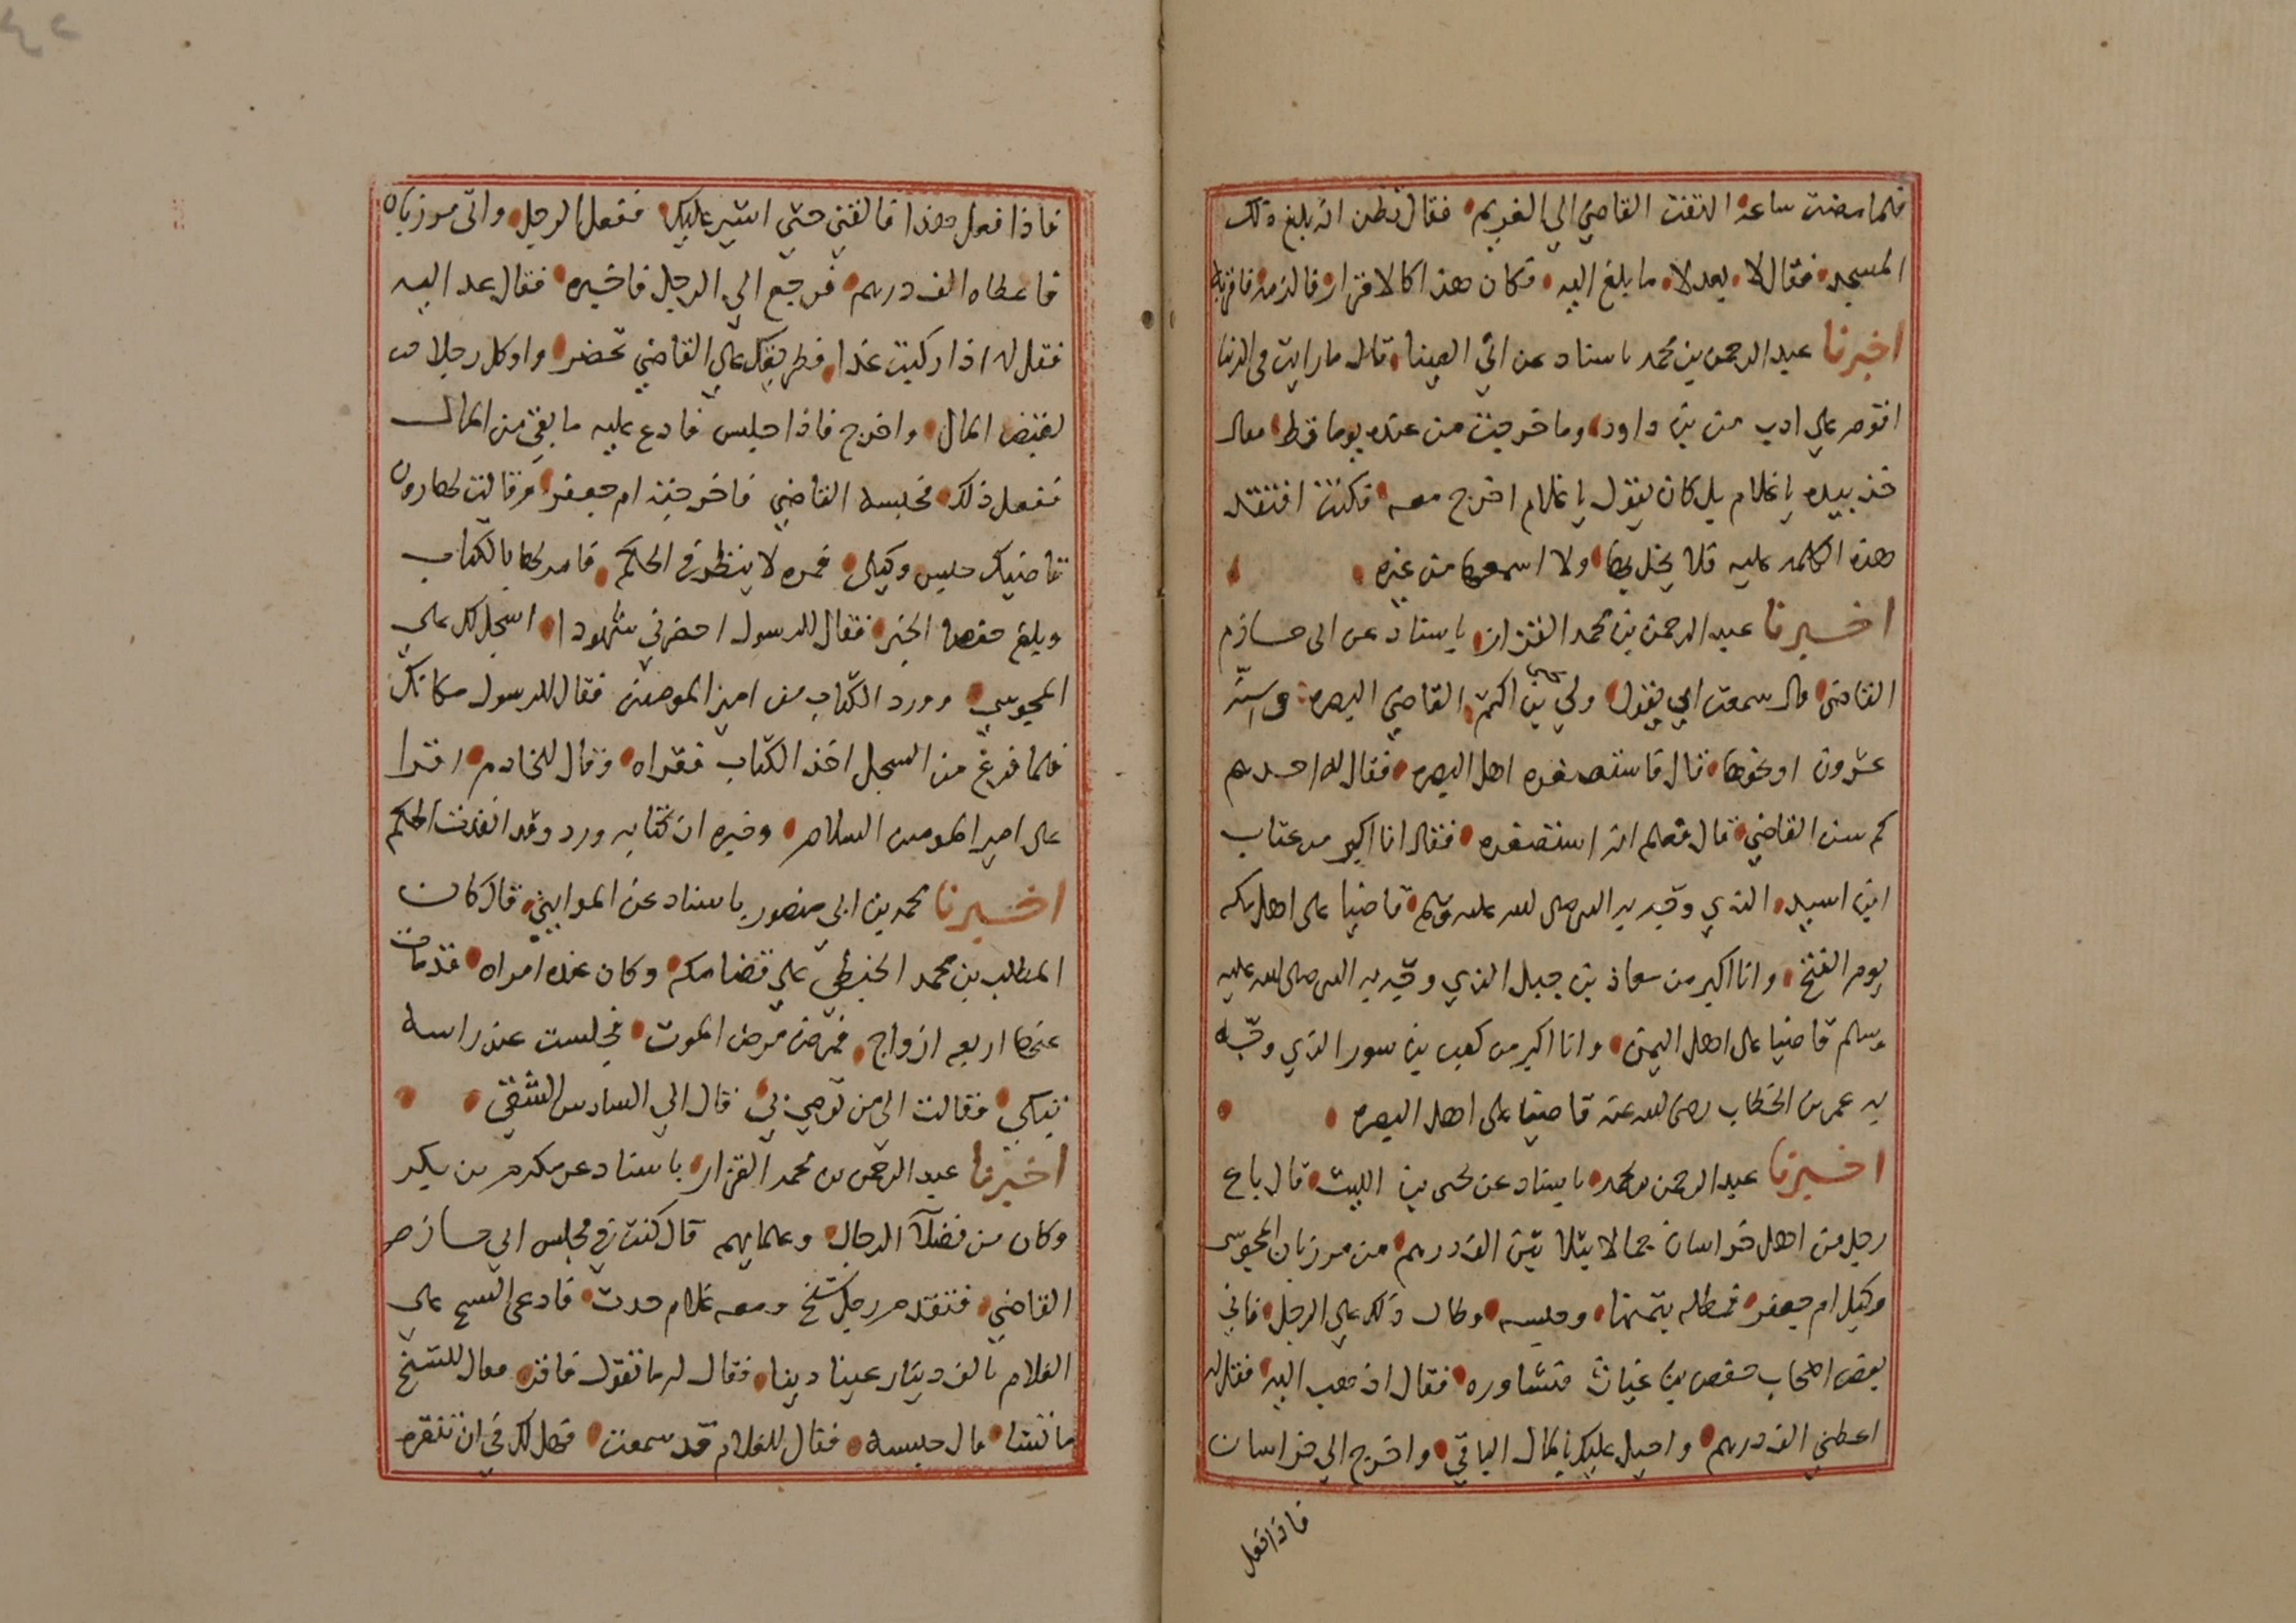 فلما مضت ساعة التفت القاضي الي الغريم فقال تظن انه بلغ ذلك
المسجد فقال لا بعد لا ما بلغ اليه فكان هذا كالاقرار فالزمه فاقر به
اخبرنا عبد الرحمن بن محمد باسناد عن ابي العينا قال ما رايت في الدنيا
اقوم علي ادب من بن داود وما خرجت من عنده يوما قط فقال
خذ بيده يا غلام بل كان يقول يا غلام اخرج معه فكنت افتقد
هذه الكلمه عليه فلا يخل بها ولا اسمعها من غيره
اخبرنا عبد الرحمن بن محمد القزاز باسناد عن ابي حازم
القاضي قال سمعت ابي يقول ولي يحيى بن اكثم القاضي البصره وسنه
عشرون او نحوها قال فاستصغره اهل البصره فقال له احدهم
كم سن القاضي قال فعلم انه استصغره فقال انا اكبر من عتاب
ابن اسيد الذي وجه به النبي صلى الله عليه وسلم قاضيا على اهل مكه
يوم الفتح وانا اكبر من معاذ بن جبل الذي وجه به النبي صلى الله عليه
وسلم قاضيا على اهل اليمن وانا اكبر من كعب بن سور الذي وجه
به عمر بن الخطاب رضى الله عنه قاضيا على اهل البصره
اخبرنا عبد الرحمن بن محمد باسناد عن يحيى بن الليث قال باع
رجل من اهل خراسان جمالا بثلاثين الف درهم من مرزبان المجوسى
وكيل ام جعفر فمطله بثمنها وحبسه وطال ذلك علي الرجل فاتي
بعض اصحاب حفص بن غياث فشاوره فقال اذهب اليه فقل له
اعطني الف درهم واحيل عليك بالمال الباقي واخرج الي خراسان
فاذا فعل
فاذا فعل هذا فالقني حتي اشير عليك ففعل الرجل واتى مرزبان
فاعطاه الف درهم فرجع الي الرجل فاخبره فقال عد اليه
فقل له اذا ركبت غدا فطريقك علي القاضي تحضر واوكل رجلا من
لقبض المال واخرج فاذا جلس فادع عليه ما بقي من المال
ففعل ذلك فحبسه القاضي فاخرجته ام جعفر وقالت لهارون
قاضيك حبس وكيلي فمره لا ينظر في الحكم فامر لها بالكتاب
وبلغ حفصا الخبر فقال للرسول احضرني شهودا اسجل لك علي
المجوسي وورد الكتاب من امير المومنين فقال للرسول مكانك
فلما فرغ من السجل اخذ الكتاب فقراه وقال للخادم اقرا
على امير المومنين السلام وخبره ان كتابه ورد وقد انفذت الحكم
اخبرنا محمد بن ابي منصور باسناد عن قال كان
المطلب بن محمد الحنطبي علي قضا مكه وكان عنده امراه قد مات
عنها اربعه ازواج فمرض مرض الموت فجلست عند راسه
تبكي فقالت الي من توصي بي قال الي السادس الشقي
اخبرنا عبد الرحمن بن محمد القزاز باسناد عن مكرم بن بكر
وكان من فضلآ الرجال وعلمايهم قال كنت في مجلس ابي حازم
القاضي فتقدم رجل شيخ ومعه غلام حدث فادعى الشيخ علي
الغلام بالف دينار عينا دينا فقال له ما تقول فاقر فقال للشيخ
ما تشا قال حبسه فقال للغلام قد سمعت فهل لك في ان تنقره